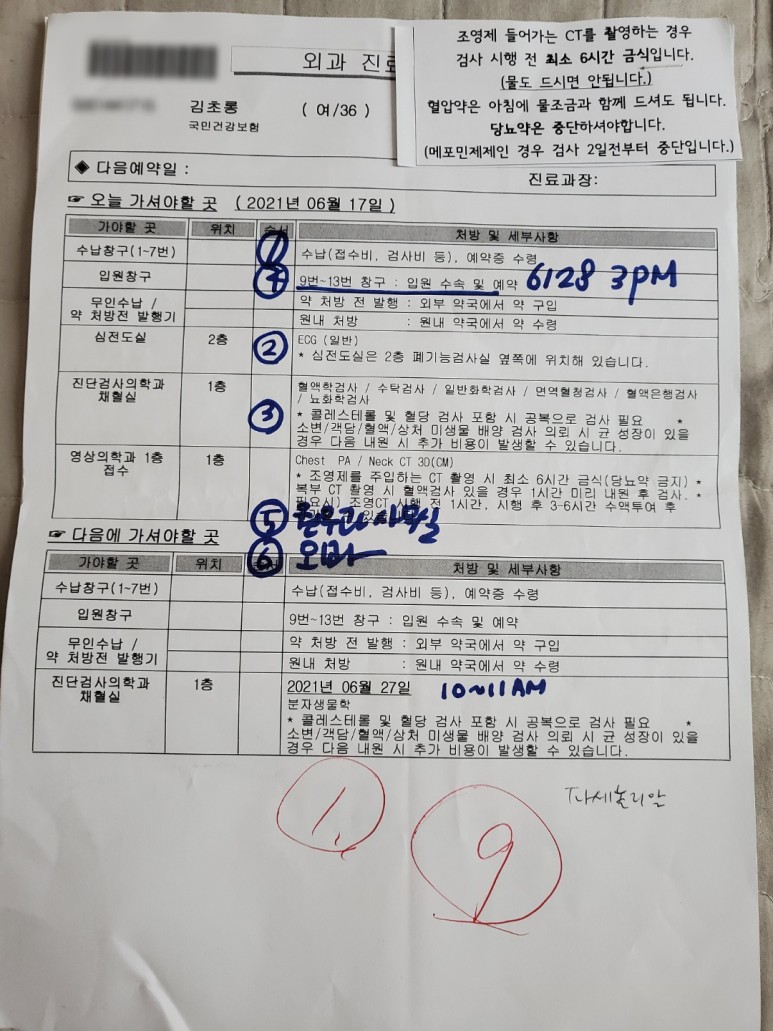 외과 진료
조영제 들어가는 CT를 촬영하는 경우
검사 시행 전 최소 6시간 금식입니다.
(물도 드시면 안됩니다.)
혈압약은 아침에 물조금과 함께 드셔도 됩니다.
당뇨약은 중단하셔야합니다.
(메포민제제인 경우 검사 2일전부터 중단입니다.)
김초롱 ( 여/36 )
국민건강보험
◈ 다음예약일 :
진료과장:
☞ 오늘 가셔야할 곳 ( 2021년 06월 17일 )
가야할 곳 위치 순서 처방 및 세부사항
수납창구(1~7번) ① 수납(접수비, 검사비 등), 예약증 수령
입원창구 ④ 9번~13번 창구 : 입원 수속 및 예약 6/28 3PM
무인수납 /
약 처방전 발행기
약 처방 전 발행 : 외부 약국에서 약 구입
원내 처방 : 원내 약국에서 약 수령
심전도실 2층 ② ECG (일반)
* 심전도실은 2층 폐기능검사실 옆쪽에 위치해 있습니다.
진단검사의학과
채혈실
1층 ③ 혈액학검사 / 수탁검사 / 일반화학검사 / 면역혈청검사 / 혈액은행검사
/ 뇨화학검사
* 콜레스테롤 및 혈당 검사 포함 시 공복으로 검사 필요 *
소변/객담/혈액/상처 미생물 배양 검사 의뢰 시 균 성장이 있을
경우 다음 내원 시 추가 비용이 발생할 수 있습니다.
영상의학과 1층
접수
1층 Chest PA / Neck CT 3D(CM)
* 조영제를 주입하는 CT 촬영 시 최소 6시간 금식(당뇨약 금지) *
복부 CT 촬영 시 혈액검사 있을 경우 1시간 미리 내원 후 검사. *
필요시) 조영CT 시행 전 1시간, 시행 후 3-6시간 수액투여 후
⑤
⑥ 외과
☞ 다음에 가셔야할 곳
가야할 곳 위치 처방 및 세부사항
수납창구(1~7번) 수납(접수비, 검사비 등), 예약증 수령
입원창구 9번~13번 창구 : 입원 수속 및 예약
무인수납 /
약 처방전 발행기
약 처방 전 발행 : 외부 약국에서 약 구입
원내 처방 : 원내 약국에서 약 수령
진단검사의학과
채혈실
1층 2021년 06월 27일 10~11AM
분자생물학
* 콜레스테롤 및 혈당 검사 포함 시 공복으로 검사 필요 *
소변/객담/혈액/상처 미생물 배양 검사 의뢰 시 균 성장이 있을
경우 다음 내원 시 추가 비용이 발생할 수 있습니다.
1.
9